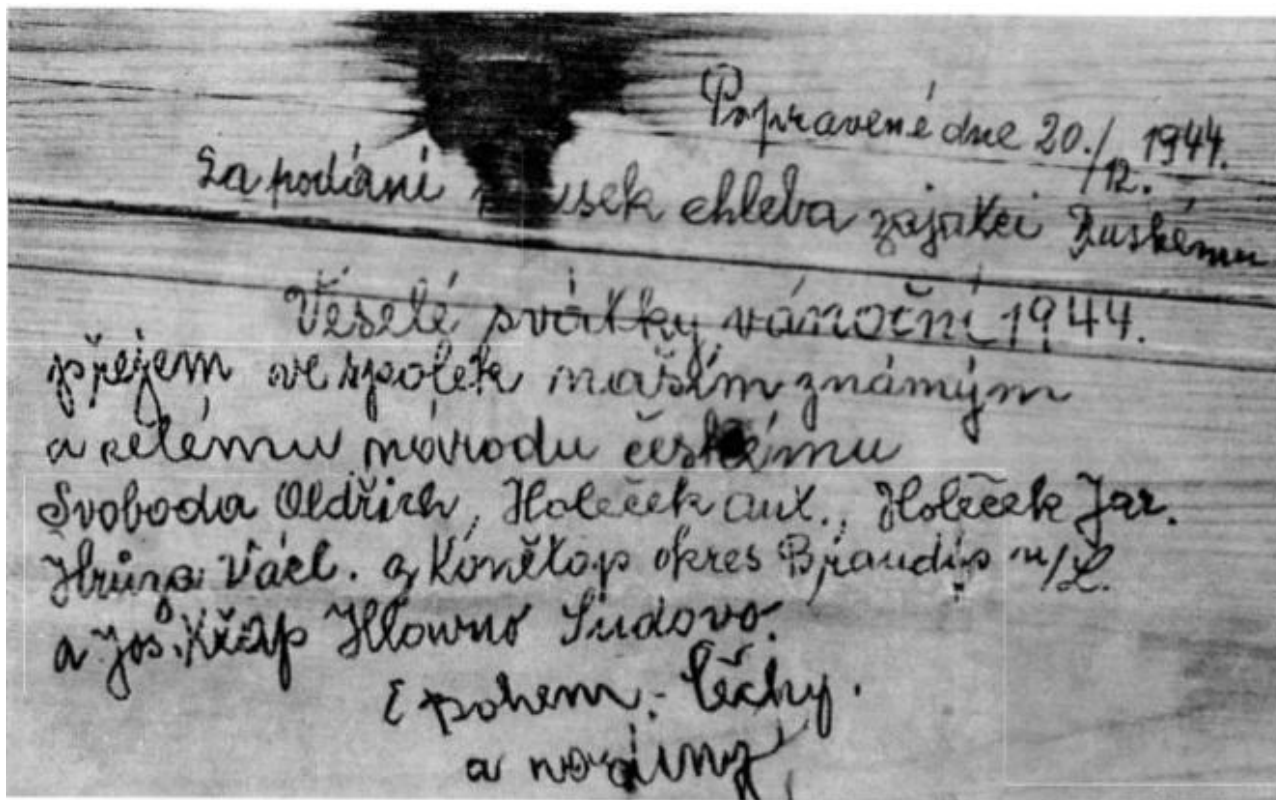 Popravené dne 20./12. 1944.
Za podání kousek chleba zajatci Ruskému
Veselé svátky vánoční 1944.
přejem ve spolek našim známým
a celému národu českému
Svoboda Oldřich, Holeček Ant., Holeček Jar.
Hrůza Václ. z Konětop okres Brandýs n/L.
a Jos. Křáp Hlawno Sudovo.
Čechy.
a rodiny